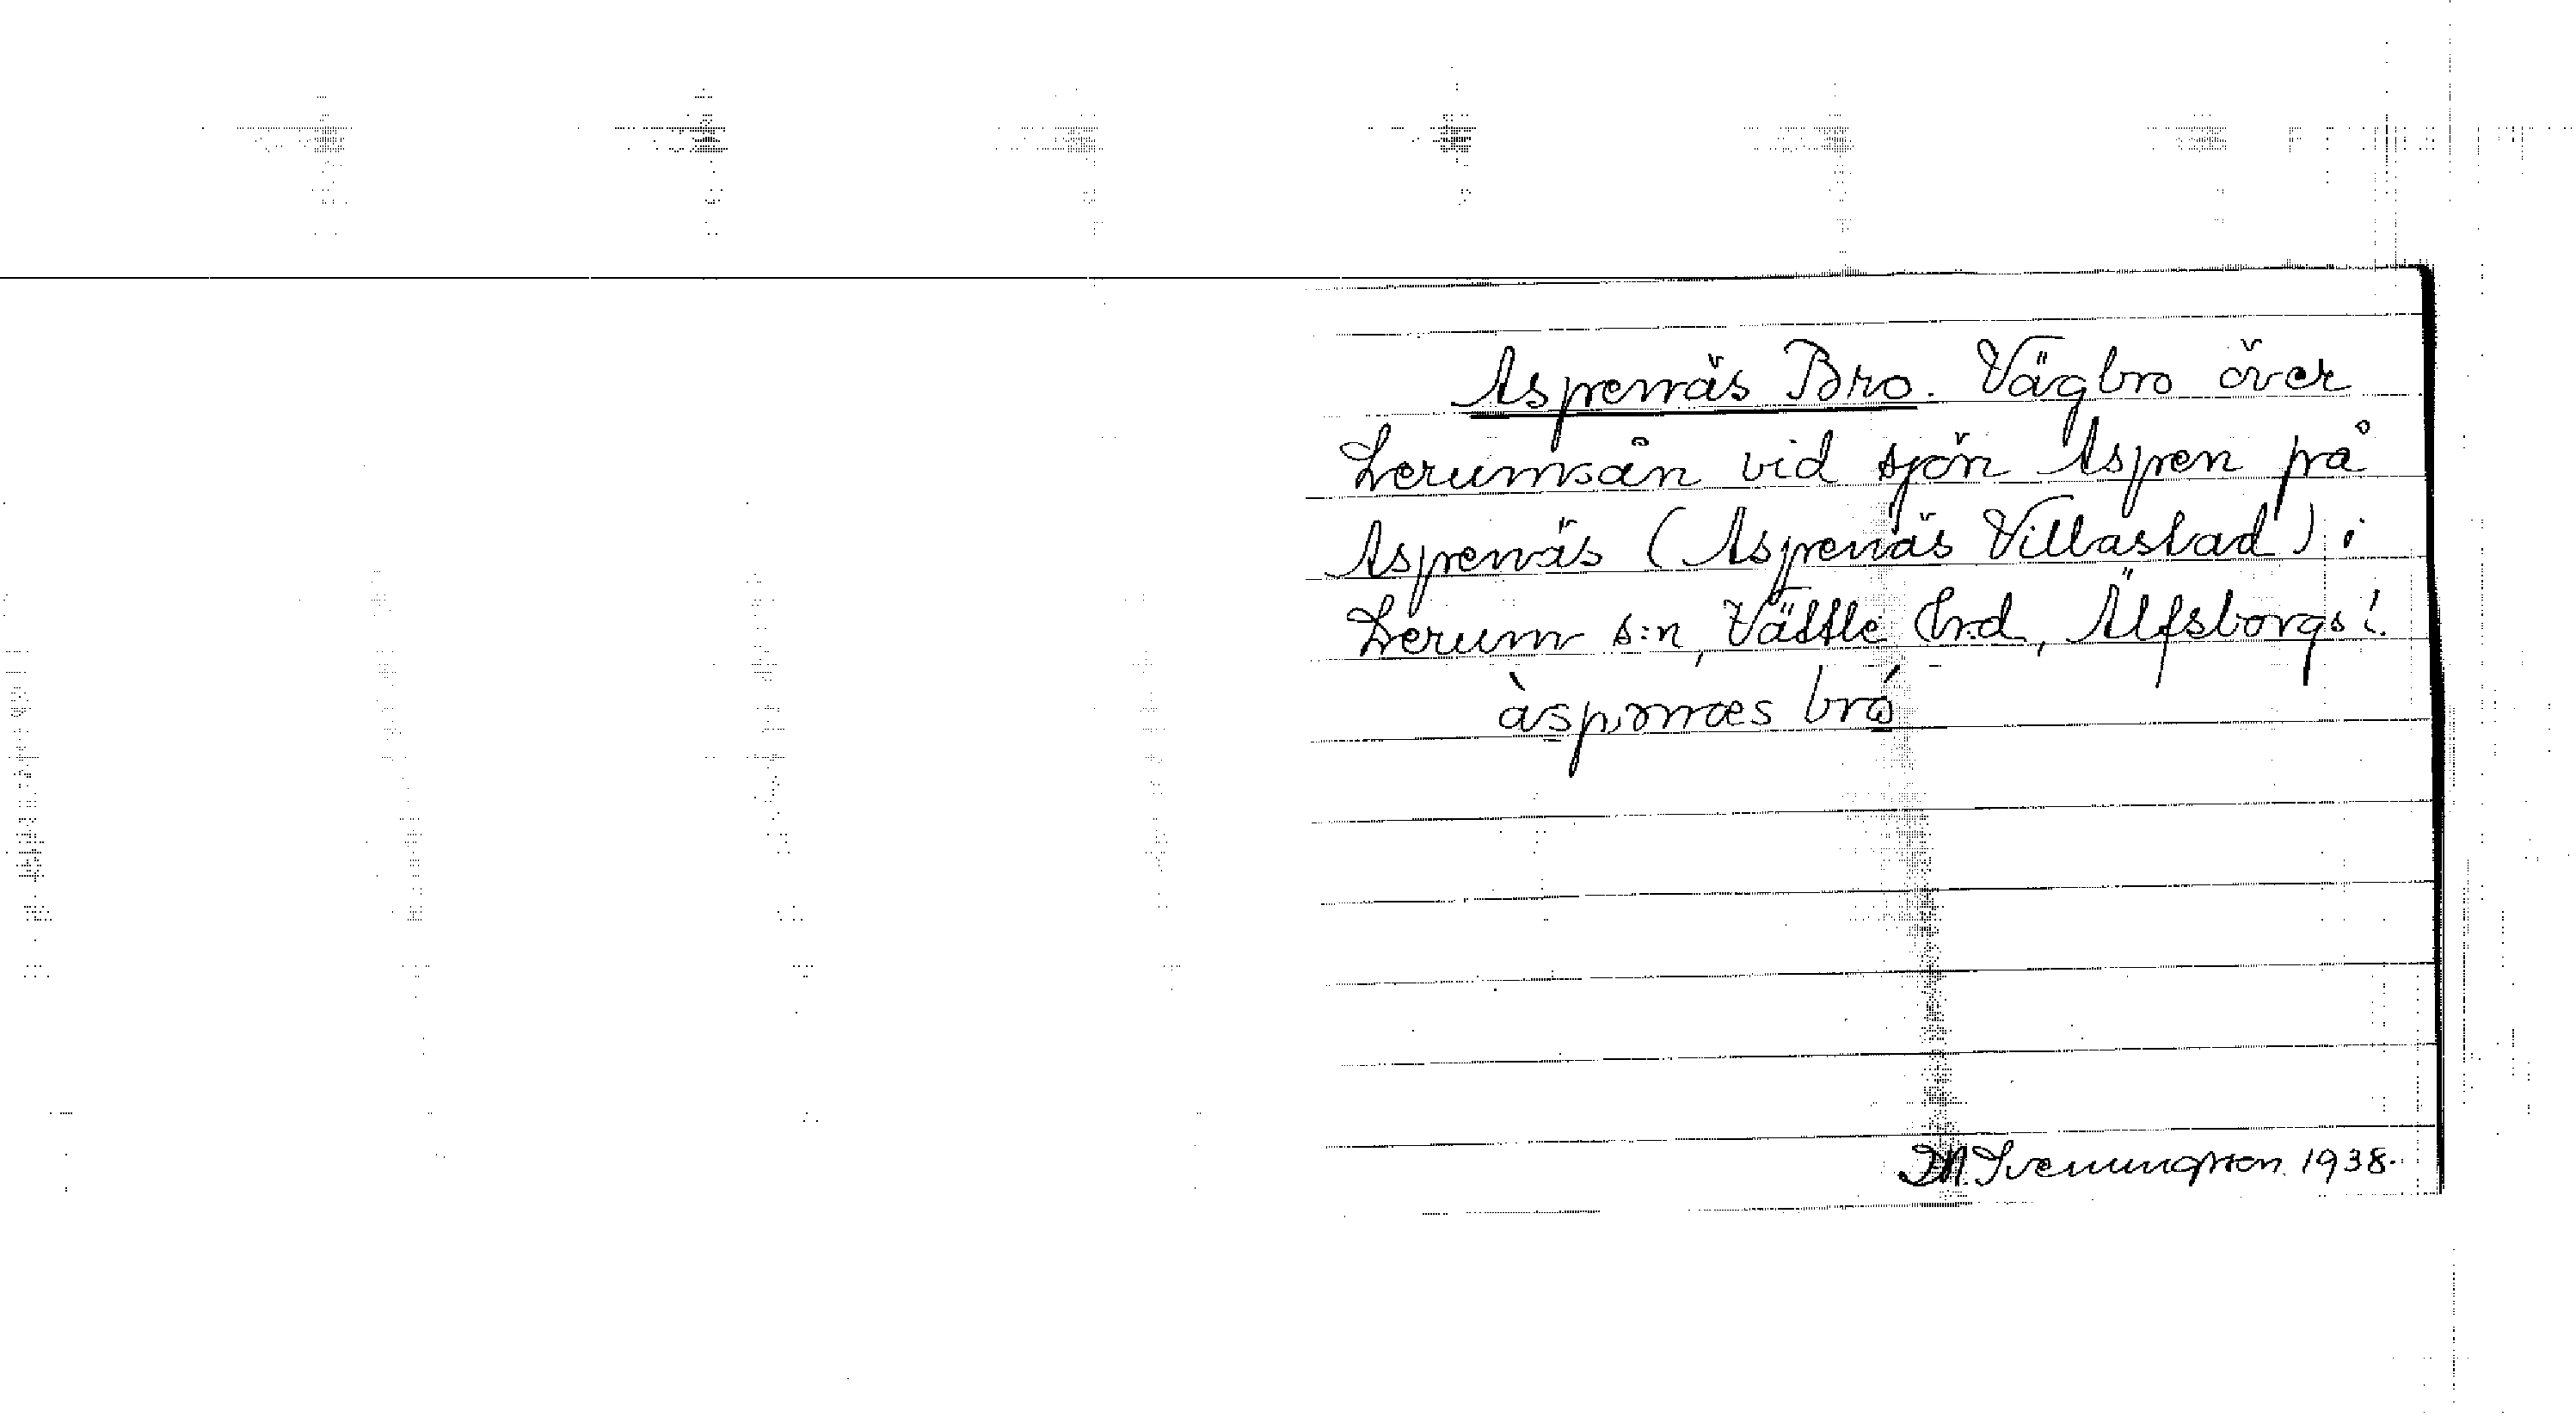 Aspenäs Bro. Vägbro över
Lerumsån vid sjön Aspen på
Aspenäs (Aspenäs Villastad) i
Lerum s:n, Vättle Hrd, Älfsborgs l.
àspənæs bró
1938.